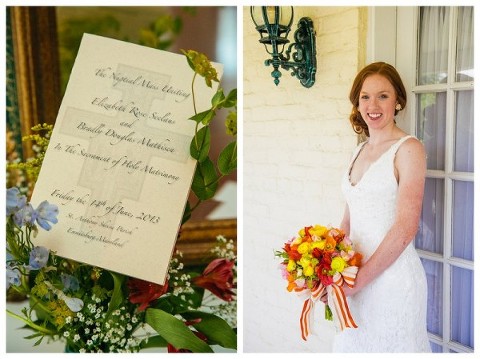 The Nuptial Mass Uniting
Elizabeth Rose Scolans
and
Bradly Douglas Mathisen
In The Sacrament of Holy Matrimony
Friday the 14th of June, 2013
St. Anthony Shrine Parish
Emmitsburg Maryland